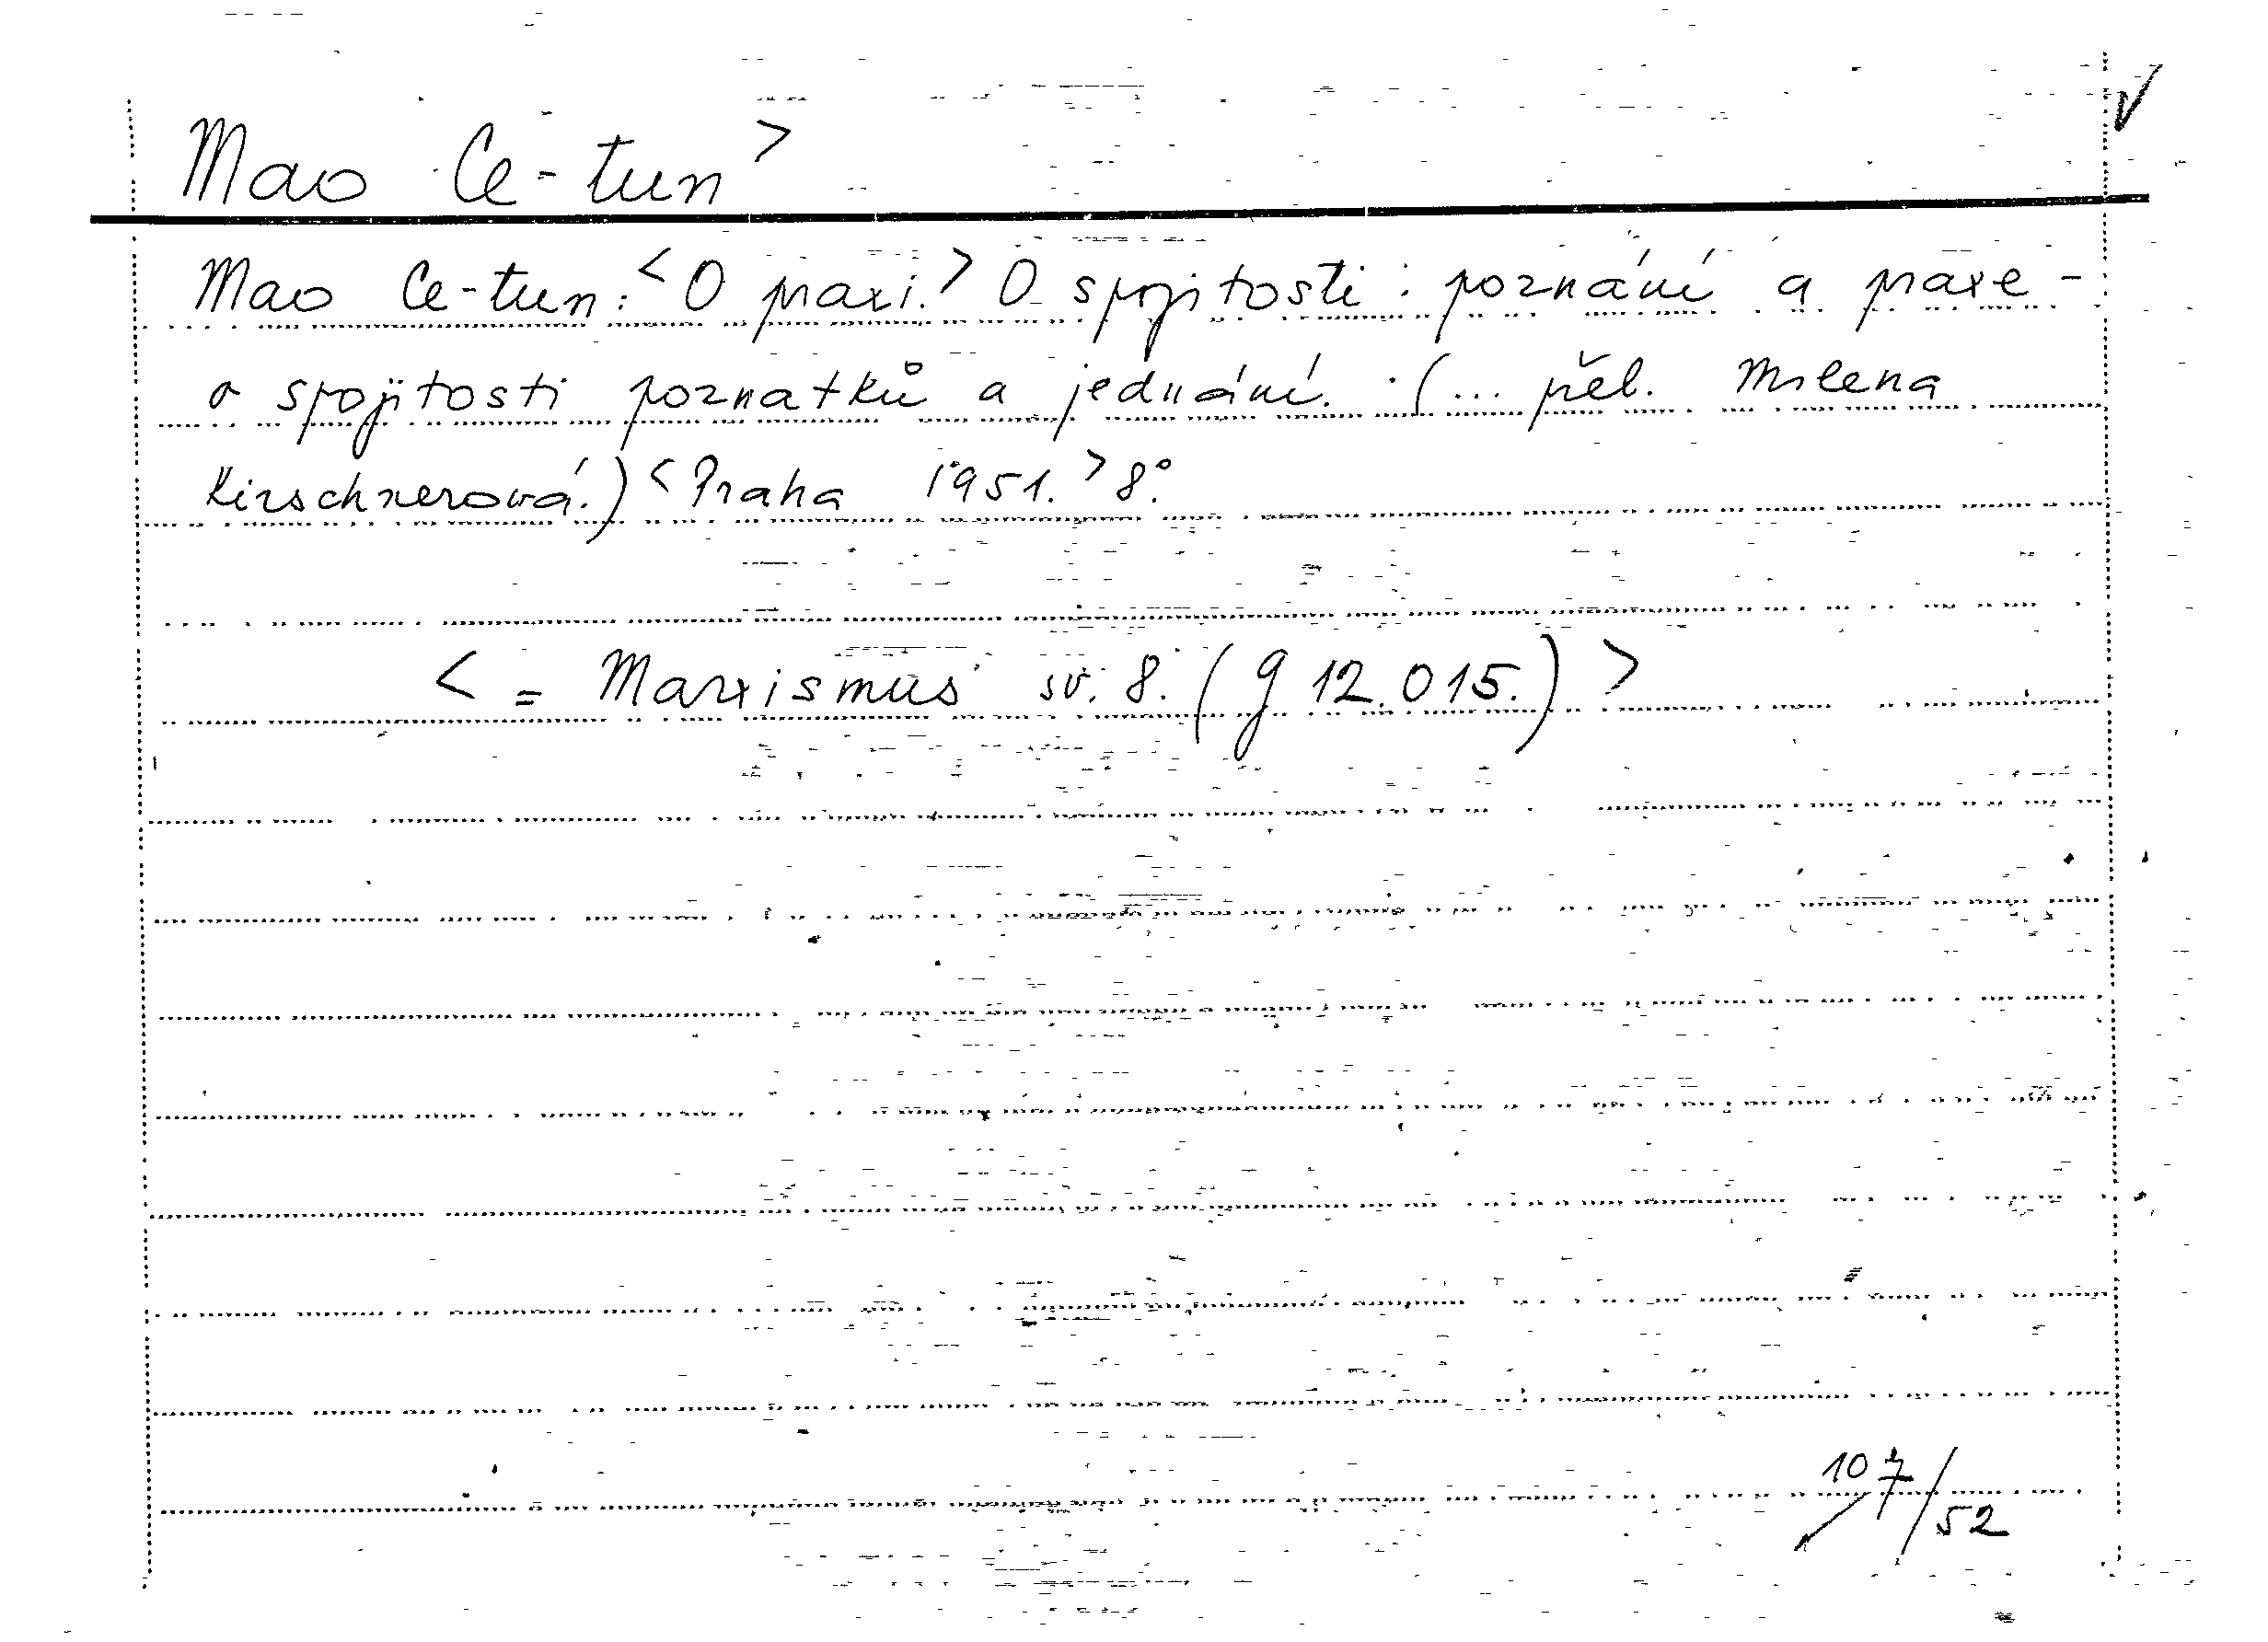 Mao Ce-tun >
Mao Ce-tun: < O praxi. > O spojitosti poznání a praxe -
o spojitosti poznatků a jednání. (... přel. Milena
Kirschnerová.) < Praha 1951. > 8°.
< = Marxismus sv. 8. (g 12.015.) >
107/52